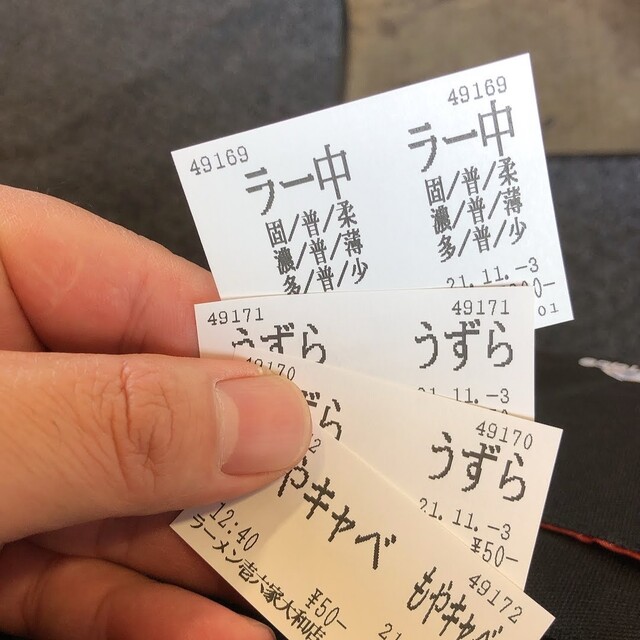 49169
ラー中
固/普/柔
濃/普/薄
多/普/少
49169
ラー中
固/普/柔
濃/普/薄
多/普/少
21.11.-3
00-
01
49171
うずら
49171
うずら
21.11.-3
49170
ずら
49170
うずら
21.11.-3
¥50-
2
やキャベ
12:40
¥50-
ラーメン壱六家大和店
49172
もやキャベ
21